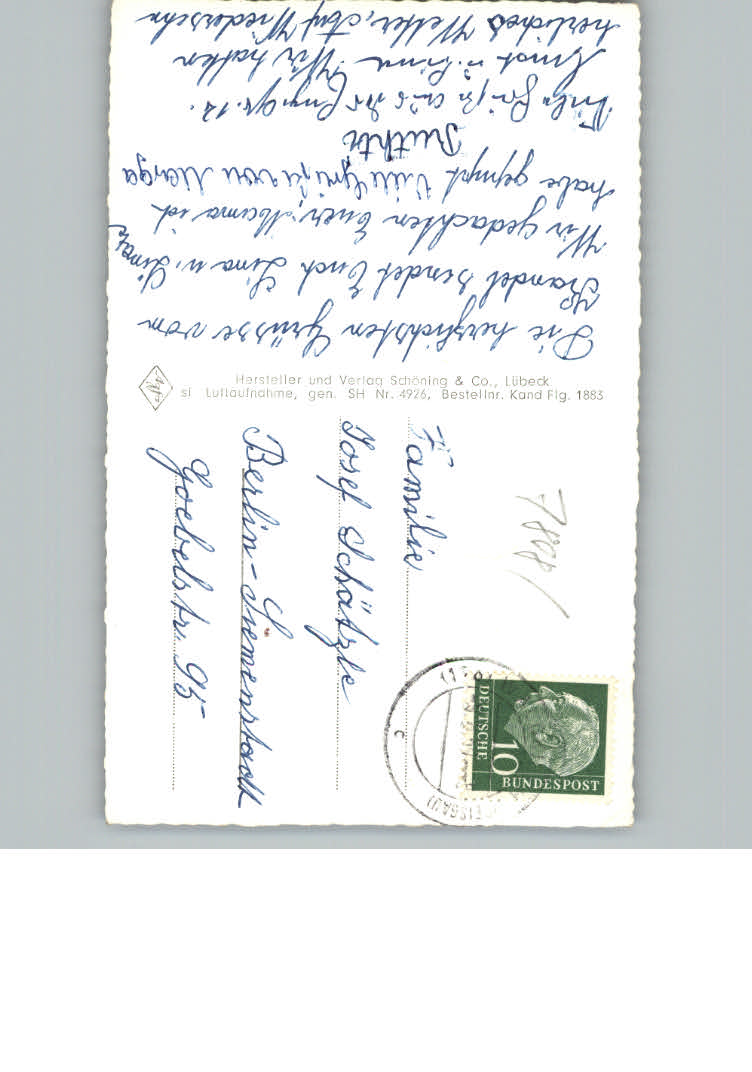 Die herzlichsten Grüsse vom
Kandel sendet Euch Lina u.
Wir gedachten Euer, Mama ich
habe gejuzt. Viele Grüße von Marga
Ruthli
Viele Grüße aus der
Ernst u. Wir hatten
herrliches Wetter, Auf Wiedersehn
Hersteller und Verlag Schöning & Co., Lübeck
sl Luftaufnahme, gen. SH Nr. 4926, Bestellnr. Kand Flg. 1883
Agfa
Familie
Josef Schätzle
Berlin-Siemensstadt
Goebelstr. 95
7808
DEUTSCHE
BUNDESPOST
10
c